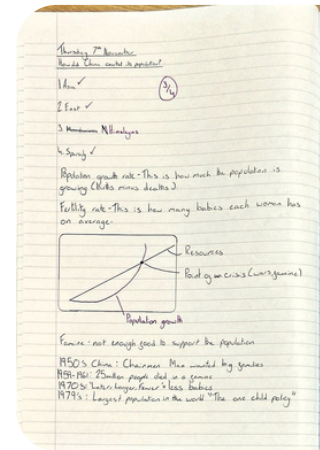 Thursday 7th November
How did China control its population?
1 Asia ✓
3/4
2 East ✓
3 Himalayas
4. Sparsely ✓
Population growth rate - This is how much the population is
growing (births minus deaths).
Fertility rate - This is how many babies each woman has
on average.
Resources
Point of crisis (wars, famine)
Population growth
Famine - not enough food to support the population
1950's China: Chairman Mao wanted big families
1959-1961: 25million people died in a famine
1970s: "Later, Longer, Fewer" = less babies
1979s: Largest population in the world "The one child policy"